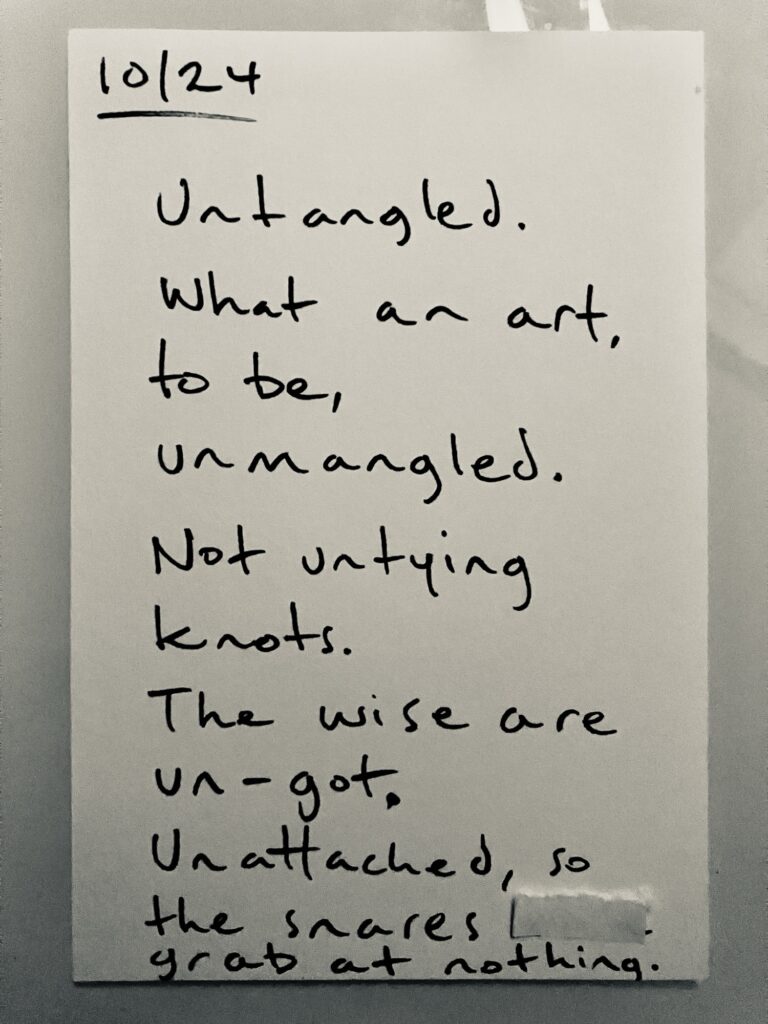 10/24
Untangled.
What an art,
to be,
unmangled.
Not untying
knots.
The wise are
un-got.
Unattached, so
the snares
grab at nothing.